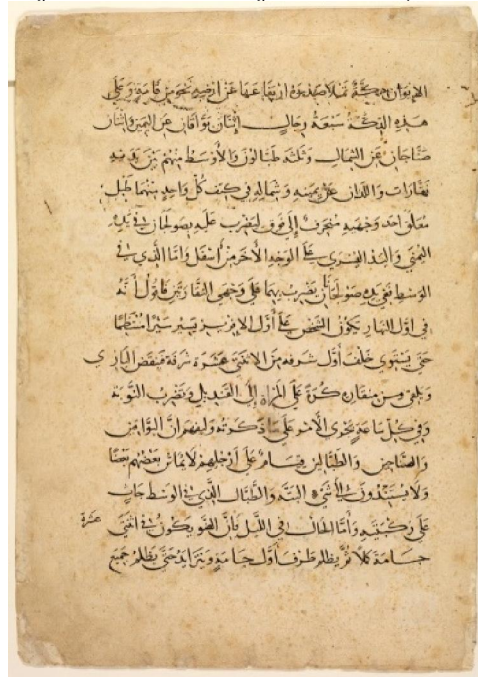 الايوان دكة تملأ صدره ارتفاعها عن ارضه نحو من قامة وعلى
هذه الدكة سبعة رجال اثنان بواقان عن اليمين واثنان
صناجان عن الشمال وثلثة طبالون والاوسط منهم بين يديه
نقارات واللذان عن يمينه وشماله في كتف كل واحد منهما طبل
معلق احد وجهيه الى فوق ليضرب عليه بصولجان في يده
اليمنى واليد اليسرى على الوجه الاخر من اسفل واما الذي في
الوسط ففي يده صولجانان يضرب بهما على وجهي النقارتين فاقول انه
في اول النهار يكون الشخص على اول الافريز يسير سيرا منتظما
حتى يستوي خلف اول شرفه من الاثنتى عشرة شرفة فينقض البازي
ويلقى من منقاره كرة على المراة الى القنديل وتضرب النوبة
وفي كل ساعة يجرى الامر على ما ذكرته وليفهم ان البواقين
والصناجين والطبالين قيام على ارجلهم لا يماس بعضهم بعضا
ولا يستندون الى شيء البتة والطبال الذي في الوسط جاث
على ركبتيه واما الحال في الليل فان الضو يكون في اثنتى عشرة
جامة كلا ثم يظلم طرف اول جامة ويتزايد حتى يظلم جميع